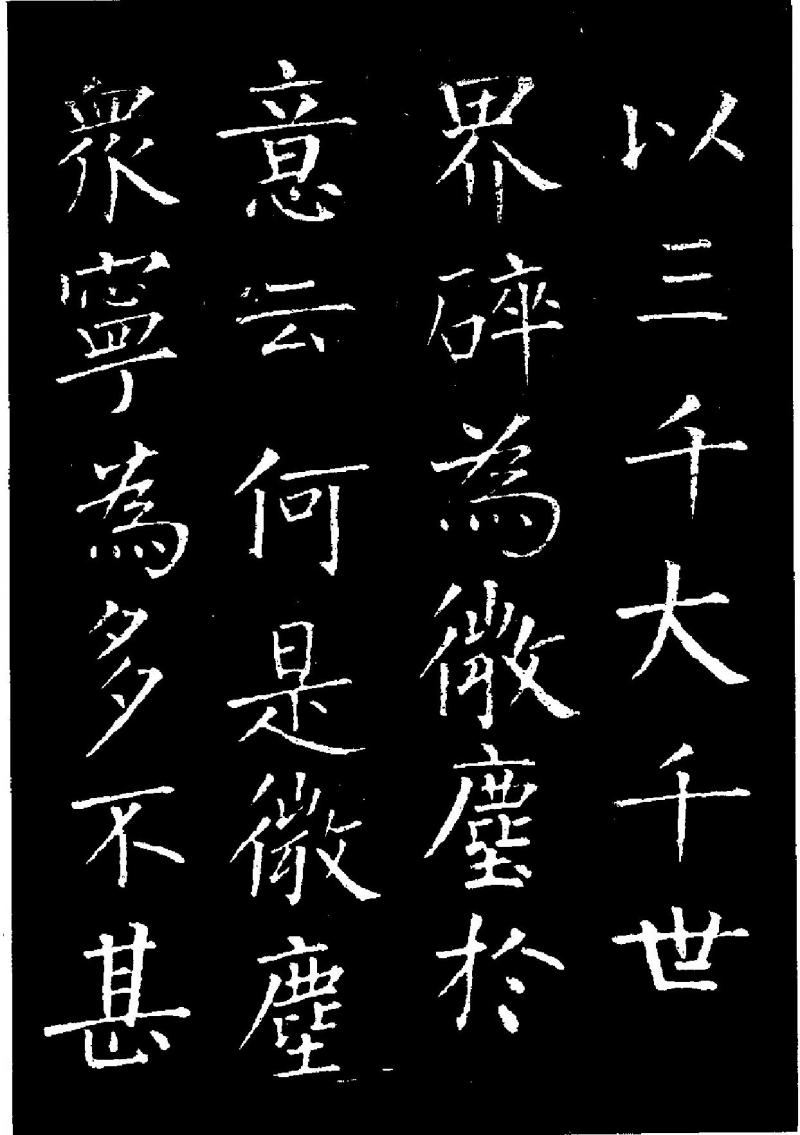 以三千大千世
界碎為微塵於
意云何是微塵
眾寧為多不甚